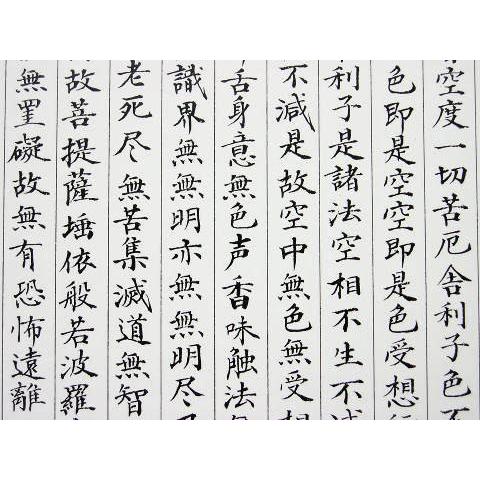 空度一切苦厄舎利子色不
色即是空空即是色受想
利子是諸法空相不生不減
不減是故空中無色無受
舌身意無色声香味触法
識界無無明亦無無明尽
老死尽無苦集滅道無智
故菩提薩埵依般若波羅
無罣礙故無有恐怖遠離